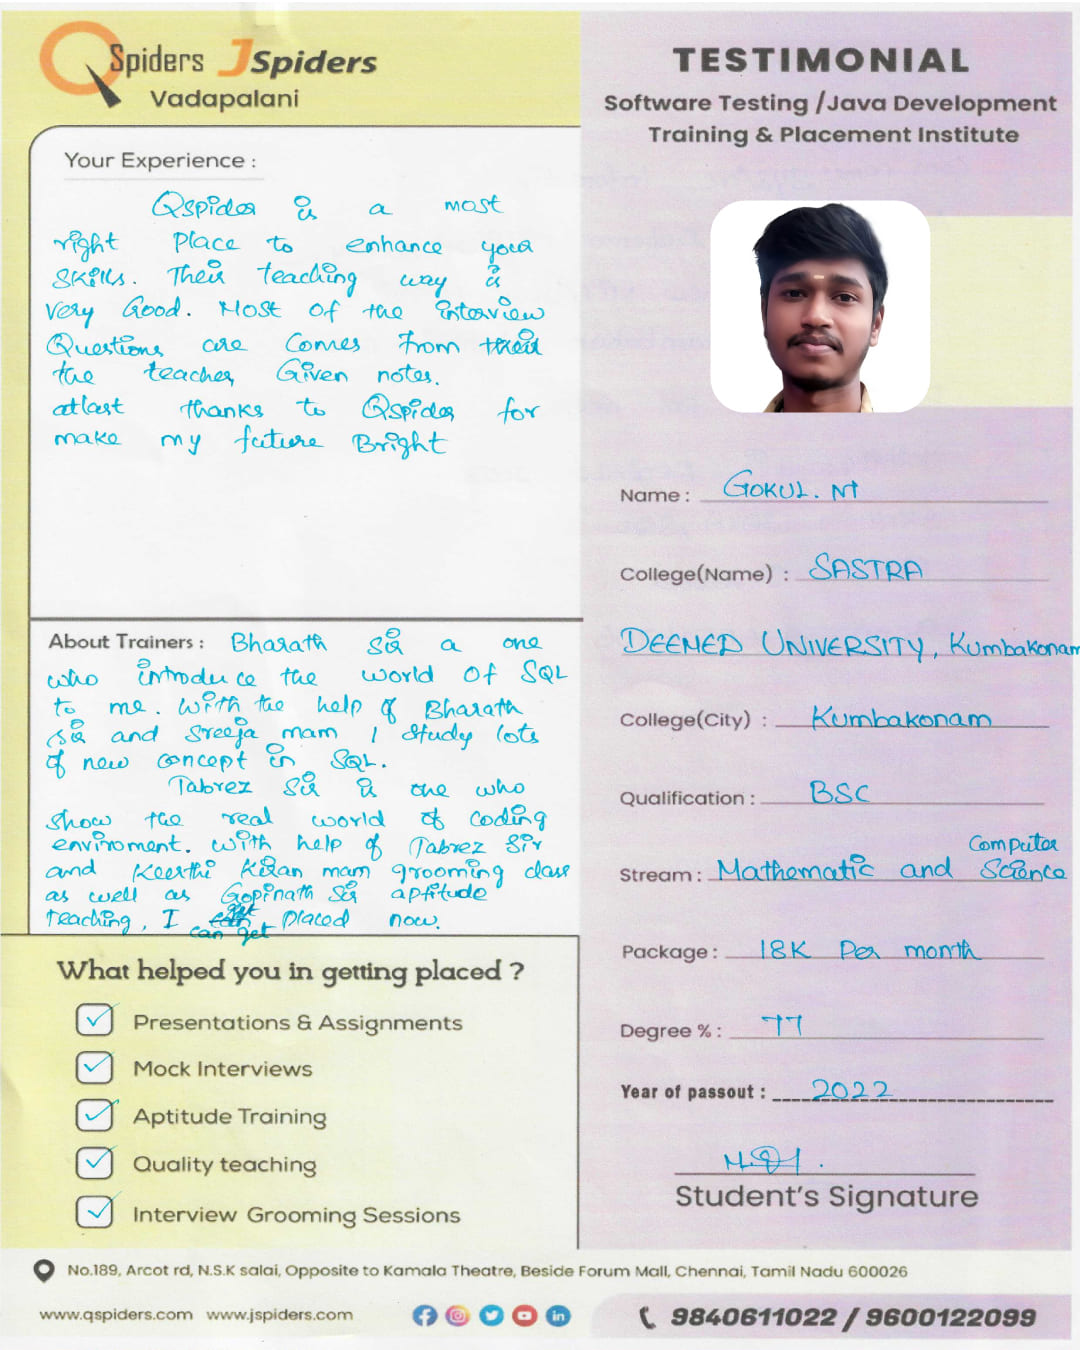 QSpiders JSpiders
Vadapalani
TESTIMONIAL
Software Testing /Java Development
Training & Placement Institute
Your Experience :
Qspider is a most
right Place to enhance your
Skills. Their teaching way is
very Good. Most of the interview
Questions are Comes From their
the teacher Given notes.
atlast thanks to QSpider for
make my future Bright
About Trainers : Bharath Sir a one
who introduce the world Of SQL
to me. With the help of Bharath
sir and Sreeja mam I Study lots
of new concept in SQL.
Tabrez Sir is one who
Show the real world of Coding
enviroment. With help of Tabrez Sir
and Keerthi Kiran mam grooming class
as well as Gopinath Sir aptitude
teaching, I can get Placed now.
What helped you in getting placed ?
Presentations & Assignments
Mock Interviews
Aptitude Training
Quality teaching
Interview Grooming Sessions
Name : GOKUL. M
College(Name) : SASTRA
DEEMED UNIVERSITY, Kumbakonam
College(City) : Kumbakonam
Qualification : BSC
Stream : Mathematic and Computer Science
Package : 18K Per month
Degree % : 77
Year of passout : 2022
Student's Signature
No.189, Arcot rd, N.S.K salai, Opposite to Kamala Theatre, Beside Forum Mall, Chennai, Tamil Nadu 600026
www.qspiders.com www.jspiders.com
9840611022 / 9600122099